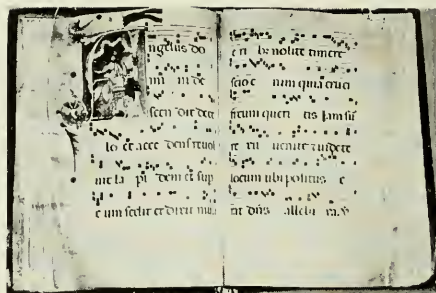 Angelus do
mi ni de
scen dit de ce
lo et acce dens reuol
uit la pi dem et sup
e um sedit et dixit muli
e ri bus nolite timere
scio e nim quia cruci
fixum queri tis iam sur
re xit uenite et uidete
locum ubi positus e
rat dns allelu ia. V